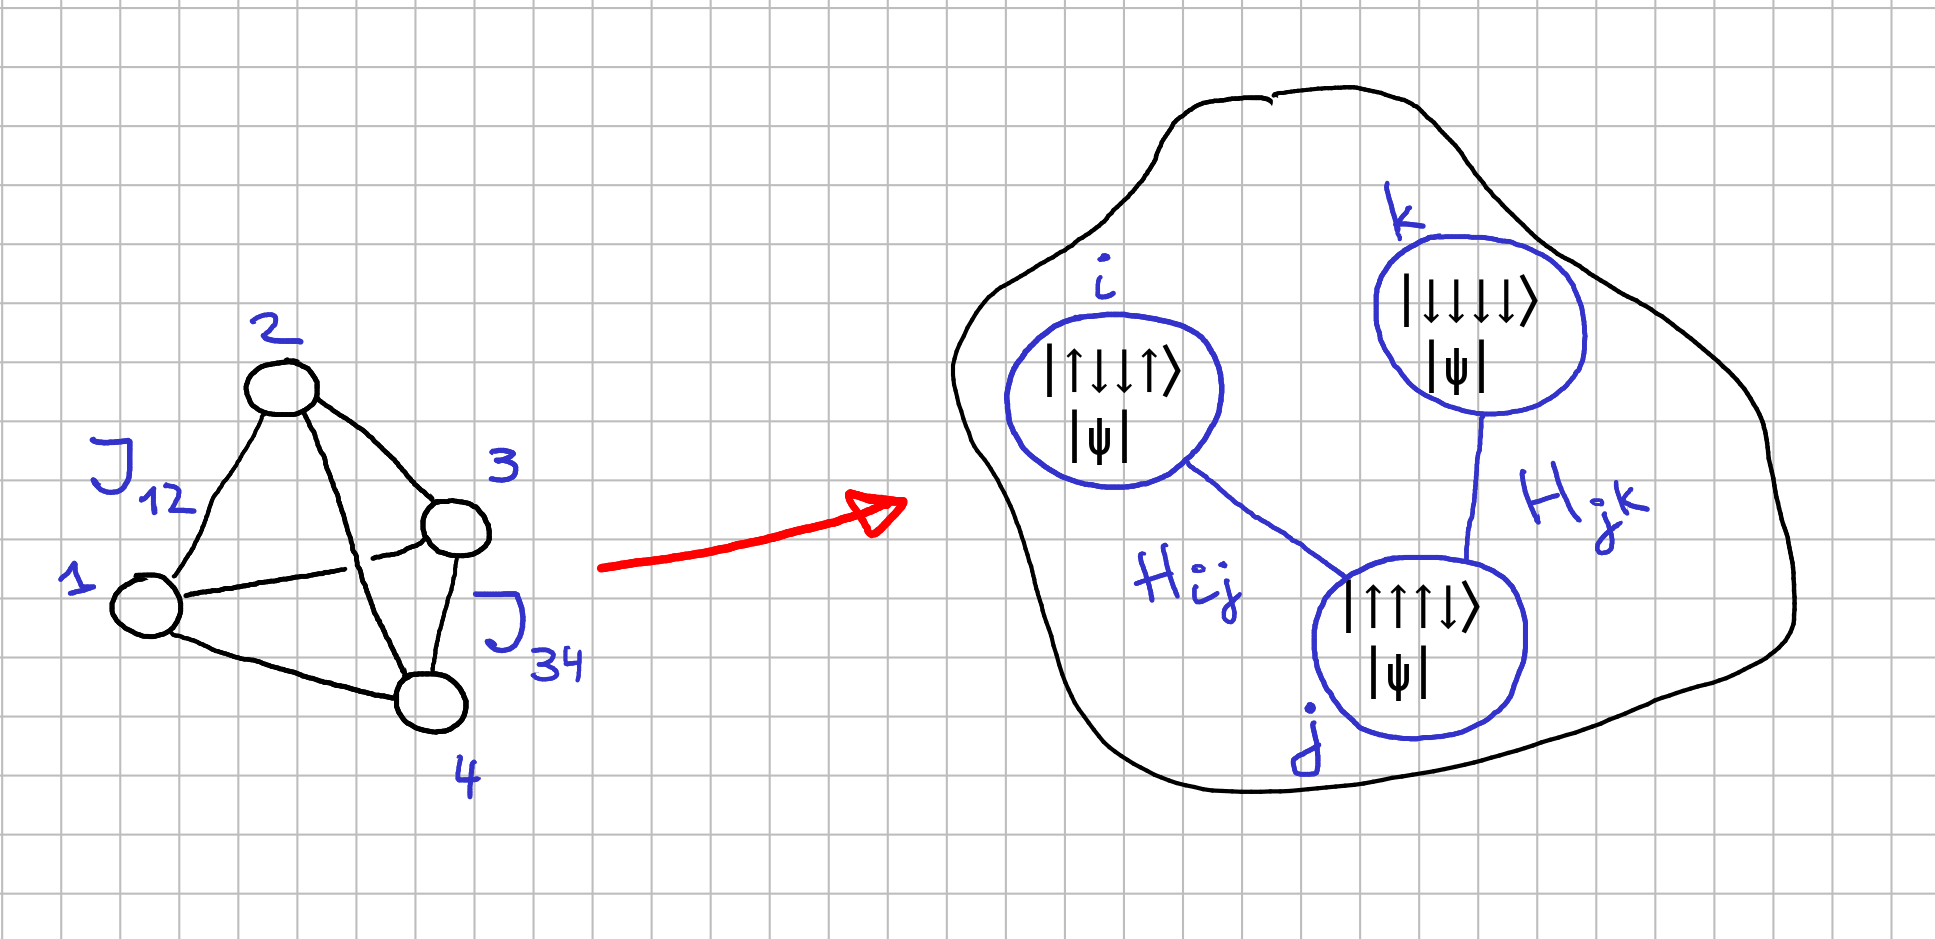 2
J₁₂
3
1
J₃₄
4
k
|↓↓↓↓⟩
|ψ|
i
|↑↓↓↑⟩
|ψ|
H_jk
H_ij
|↑↑↑↓⟩
|ψ|
j